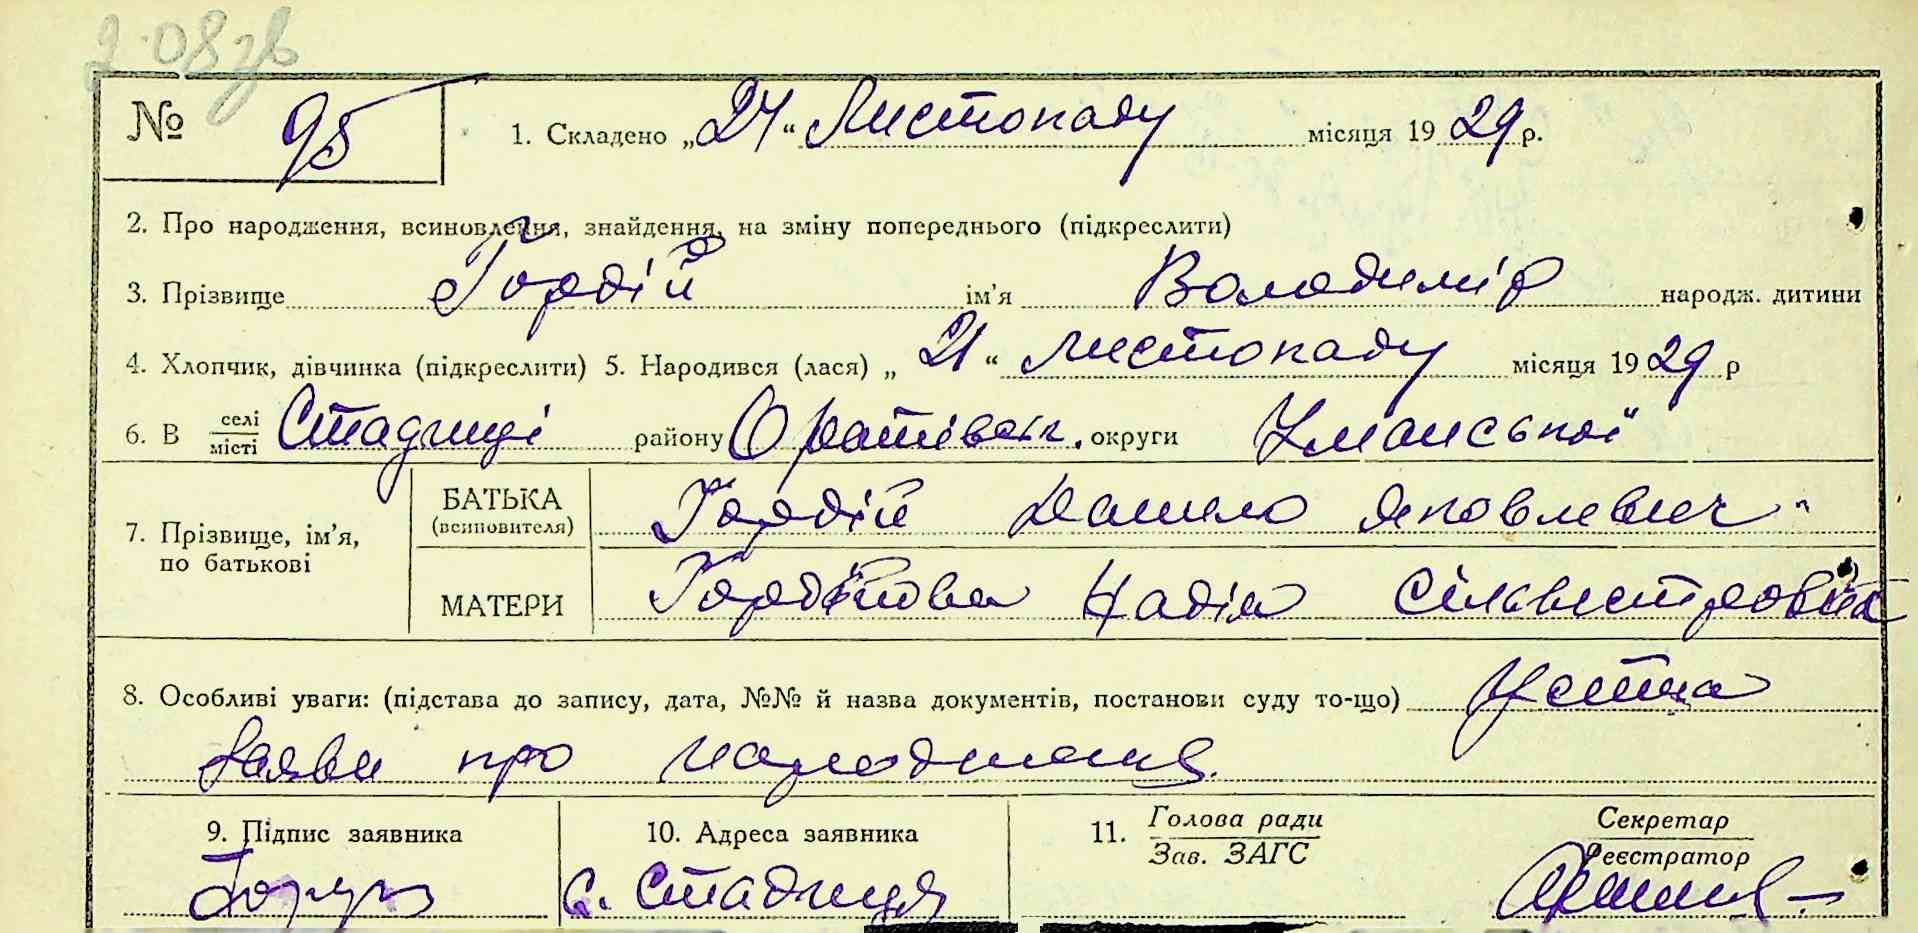 2·08зв
№ 95 1. Складено „24“ Листопаду місяця 1929 р.
2. Про народження, всиновлення, знайдення, на зміну попереднього (підкреслити)
3. Прізвище Гордій ім'я Володимір народж. дитини
4. Хлопчик, дівчинка (підкреслити) 5. Народився (лася) „21“ листопаду місяця 1929 р
6. В селі/місті Стадниці району Оратівськ. округи Уманської
7. Прізвище, ім'я, по батькові
БАТЬКА (всиновителя) Гордій Данило Яковлевич
МАТЕРИ Гордійова Надія Сільвестровна
8. Особливі уваги: (підстава до запису, дата, №№ й назва документів, постанови суду то-що) Устна
заява про народження
9. Підпис заявника 10. Адреса заявника 11. Голова ради / Зав. ЗАГС Секретар / Реєстратор
с. Стадниця